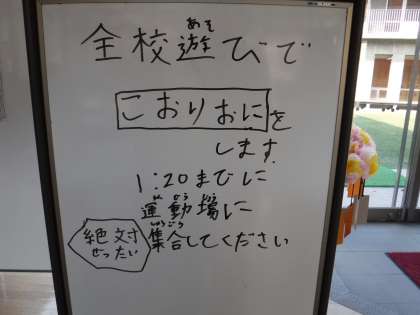 全校遊びで
あそ
こおりおにを
します。
1:20までに
運動場に
うんどうじょう
絶対
ぜったい
集合してください
しゅうごう